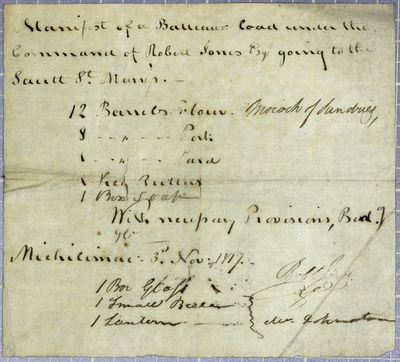 Manifest of a Batteaux load under the
Command of Robert Jones Esqr going to the
Sault St. Mary's. —
12 Barrels Flour.
8 — " — " — Pork
1 — " — Lard
1 Keg Butter
1 Box Soap
With necessary Provisions, Bed.g
&c
Michilimac: 3d Nov: 1817.
1 Box Glass
1 Small
1 Lantern — Johnston